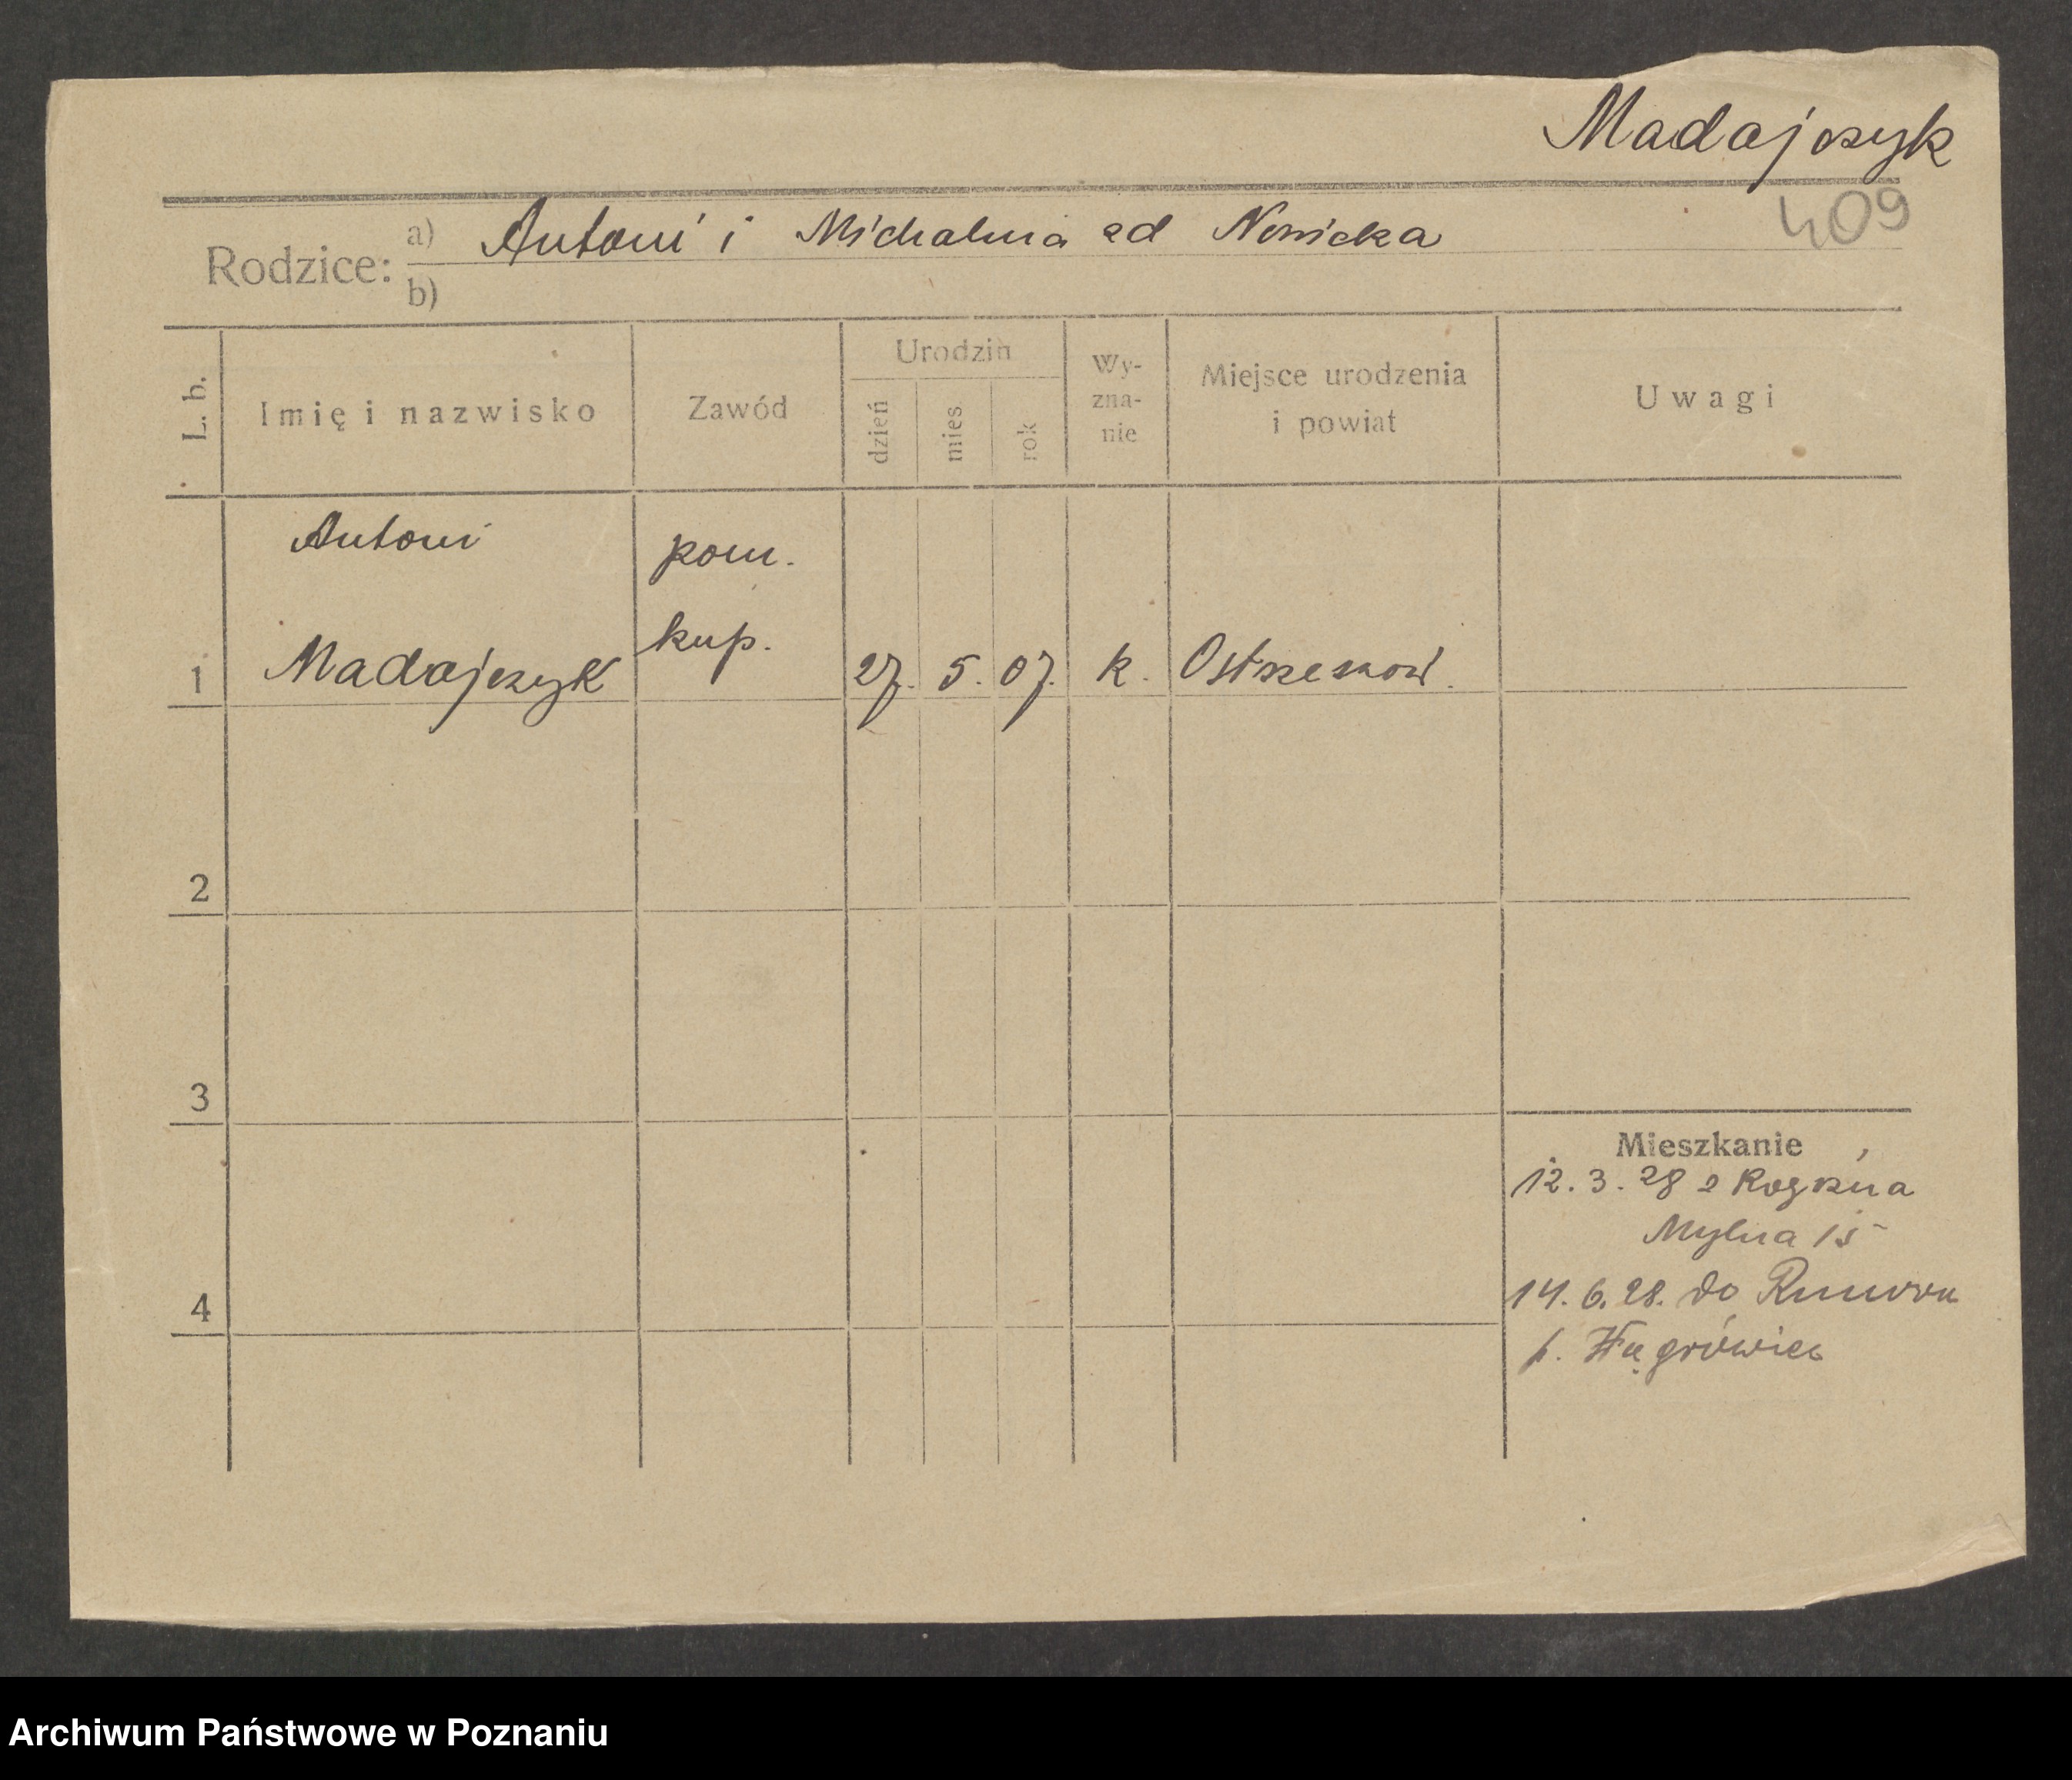 Madajczyk
409
Rodzice:
a) Antoni i Michalina zd Nowicka
b)
L. b.
Imię i nazwisko
Zawód
Urodzin
dzień
mies.
rok
Wy-
zna-
nie
Miejsce urodzenia
i powiat
Uwagi
Antoni
pom.
kup.
1 Madajczyk 27. 5. 07. k. Ostrzeszów.
2
3
Mieszkanie
12. 3. 28 z Rogoźna
Mylna 15
4
14. 6. 28. do
p. Wągrówiec
Archiwum Państwowe w Poznaniu